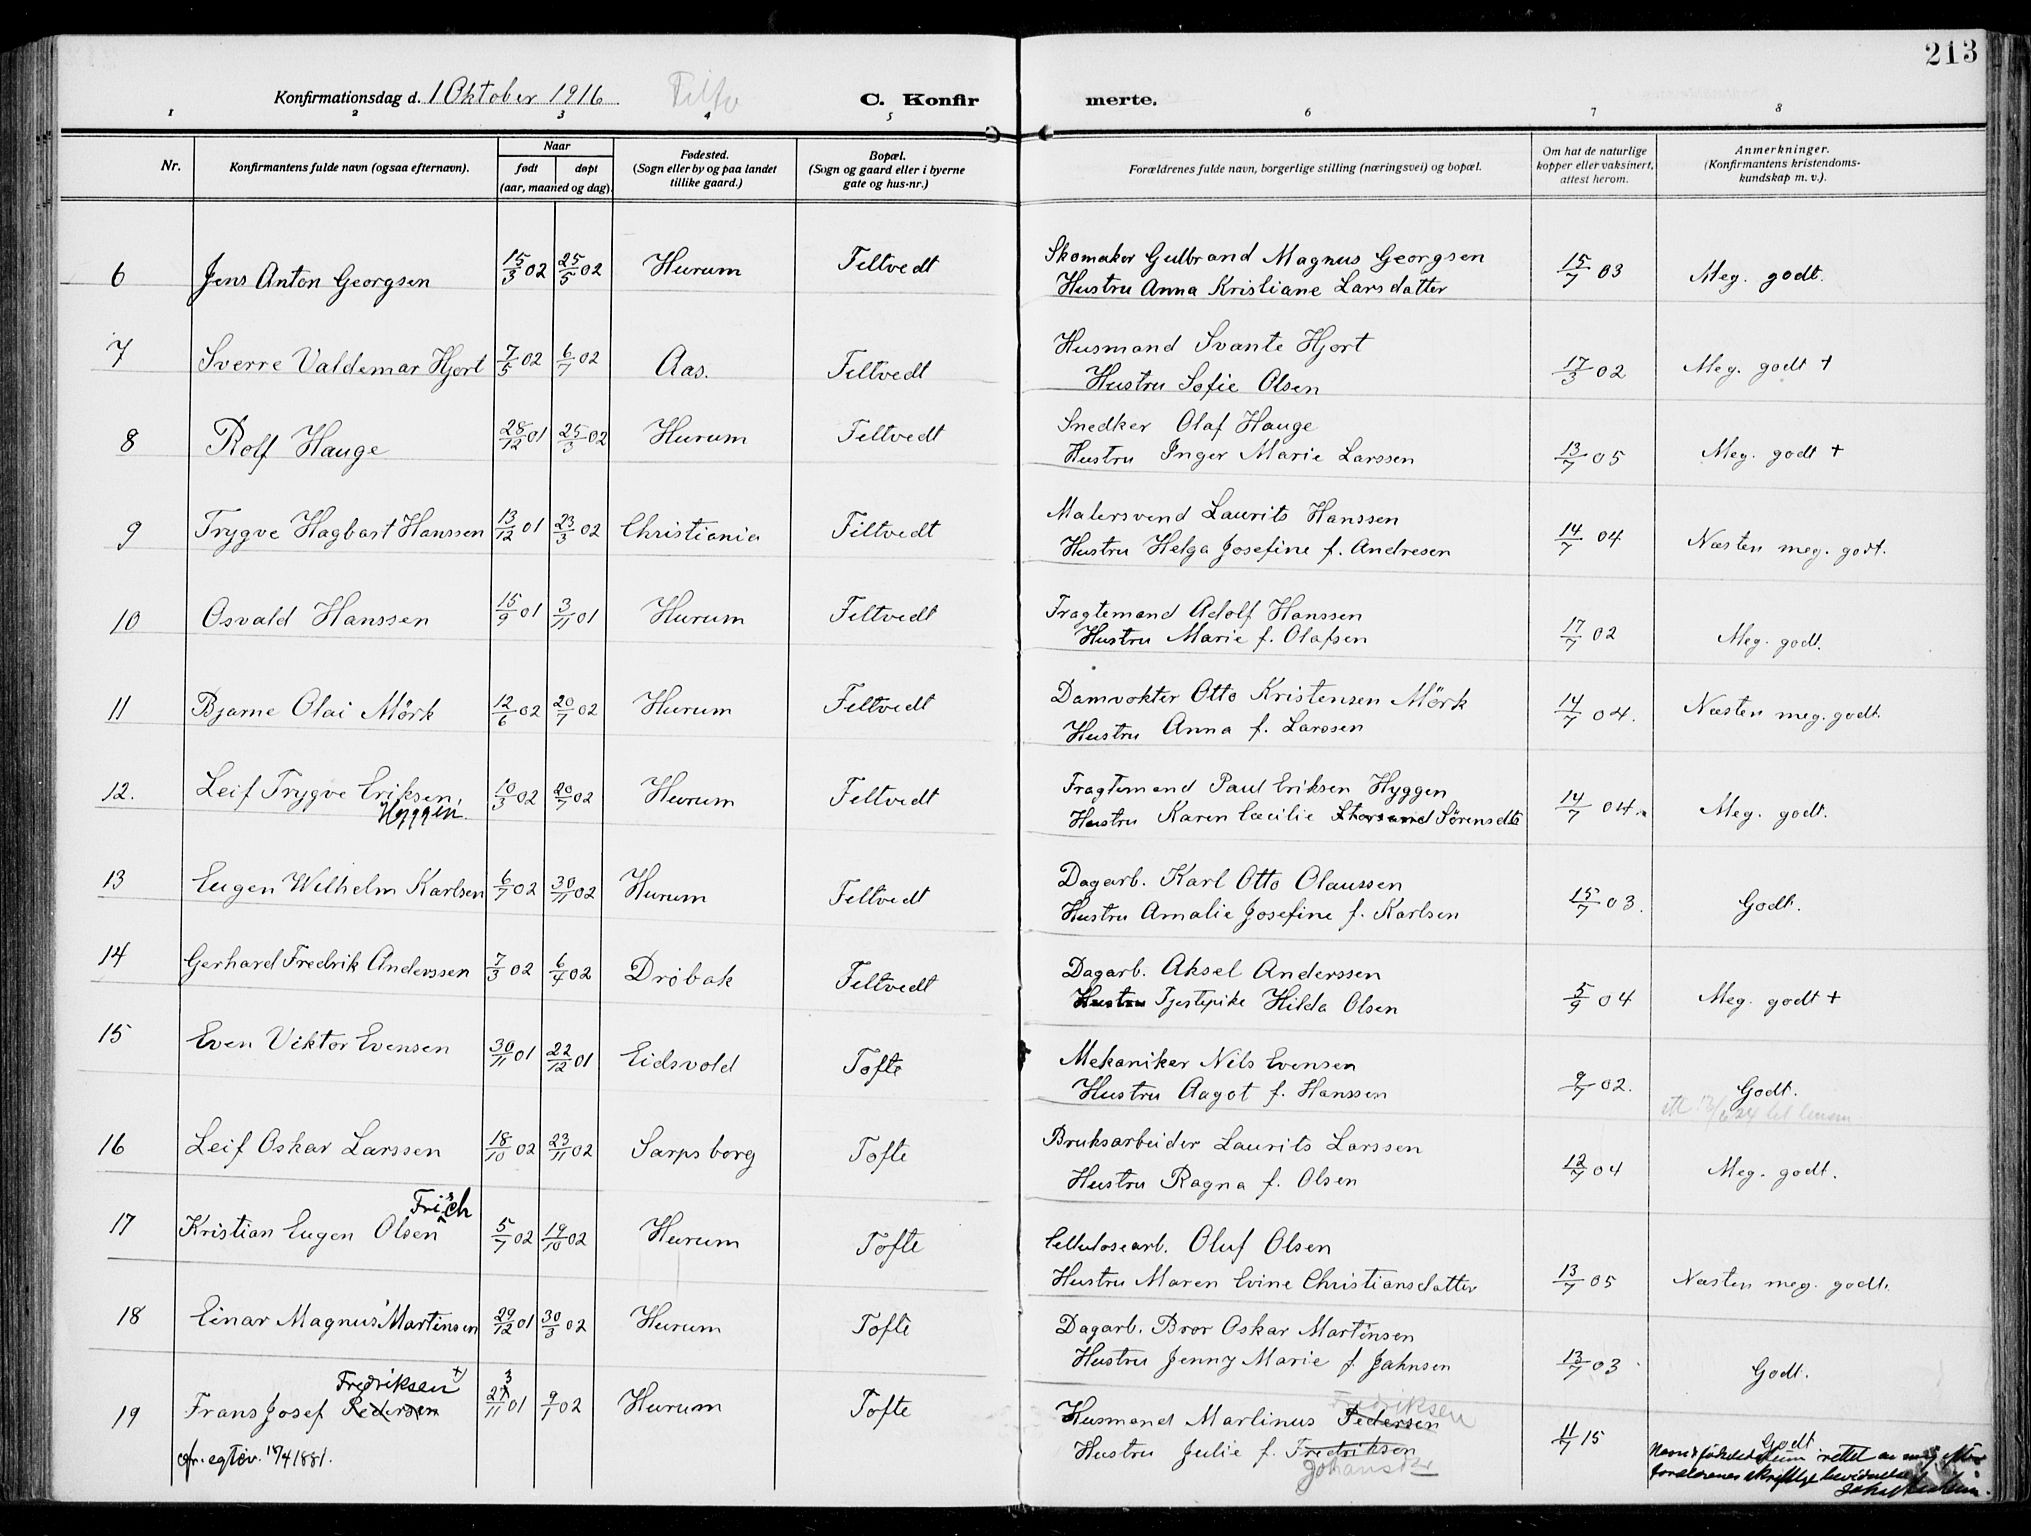 213
Konfirmationsdag d. 1 Oktober 1916. C. Konfirmerte.
1 2 3 4 5 6 7 8
Nr. Konfirmantens fulde navn (ogsaa efternavn). Naar født døpt (aar, maaned og dag). Fødested. (Sogn eller by og paa landet tillike gaard.) Bopæl. (Sogn og gaard eller i byerne gate og hus-nr.) Forældrenes fulde navn, borgerlige stilling (næringsvei) og bopæl. Om hat de naturlige kopper eller vaksinert, attest herom. Anmerkninger. (Konfirmantens kristendoms-kundskap m. v.).
6 Jens Anton Georgsen 15/3 02 25/5 02 Hurum Filtvedt Skomaker Gulbrand Magnus Georgsen 15/7 03 Meg. godt.
Hustru Anna Kristiane Larsdatter
7 Sverre Valdemar Hjort 7/5 02 6/7 02 Aas. Filtvedt Husmand Svante Hjort 17/3 02 Meg. godt +
Hustru Sofie Olsen
8 Rolf Hauge 28/12 01 25/3 02 Hurum Filtvedt Snedker Olaf Hauge 13/7 05 Meg. godt +
Hustru Inger Marie Larssen
9 Trygve Hagbart Hanssen 13/12 01 23/3 02 Christiania Filtvedt Malersvend Laurits Hanssen 14/7 04 Næsten meg. godt.
Hustru Helga Josefine f. Andresen
10 Osvald Hanssen 15/9 01 3/11 01 Hurum Filtvedt Fragtemand Adolf Hanssen 17/7 02 Meg. godt.
Hustru Marie f. Olafsen
11 Bjarne Olai Mörk 12/6 02 20/7 02 Hurum Filtvedt Damvokter Otto Kristensen Mörk 14/7 04. Næsten meg. godt.
Hustru Anna f. Larssen
12. Leif Trygve Eriksen, 10/3 02 20/7 02 Hurum Filtvedt Fragtemand Paul Eriksen Hyggen 14/7 04. Meg. godt.
Hyggen. Hustru Karen Cæcilie Sörensdtr
13 Eugen Wilhelm Karlsen 6/7 02 30/11 02 Hurum Filtvedt Dagarb. Karl Otto Olaussen 15/7 03. Godt.
Hustru Amalie Josefine f. Karlsen
14 Gerhard Fredrik Anderssen 7/3 02 6/4 02 Dröbak Filtvedt Dagarb. Aksel Anderssen 5/9 04 Meg. godt +
Hustru Tjestepike Hilda Olsen
15 Even Viktor Evensen 30/11 01 22/12 01 Eidsvold Tofte Mekaniker Nils Evensen 9/7 02. Godt.
Hustru Aagot f. Hanssen
16 Leif Oskar Larssen 18/10 02 23/11 02 Sarpsborg Tofte Bruksarbeider Laurits Larssen 12/7 04 Meg. godt.
Hustru Ragna f. Olsen
Frisch
17 Kristian Eugen Olsen 5/7 02 19/10 02 Hurum Tofte Cellulosearb. Oluf Olsen 13/7 05 Næsten meg. godt.
Hustru Maren Evine Christiansdatter
18 Einar Magnus Martinsen 29/12 01 30/3 02 Hurum Tofte Dagarb. Bror Oskar Martinsen 13/7 03 Godt.
Hustru Jenny Marie f. Jahnsen
Fredriksen +) 3 Fedriksen
19 Frans Josef Pedersen 27/11 01 9/1 02 Hurum Tofte Husmand Martinus Pedersen 11/7 15 Godt
Hustru Julie f. Fredriksen
Johansdtr
cfr. egtev. 18/4 1881.